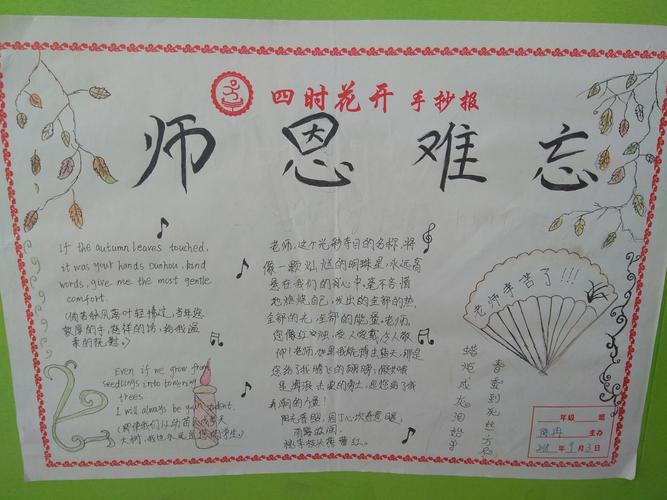 四时花开 手抄报
师恩难忘
If the autumn leaves touched,
it was your hands Dunhou, kind
words, give me the most gentle
comfort.
(倘若秋风落叶轻情过,当年您
敦厚的手,慈祥的话,给我温
柔的抚慰。)
Even if we grow from
seedlings into towering
trees
I will always be your student.
(即使我们从幼苗长成参天
大树,我也永远是您的学生。)
老师,这个光彩夺目的名称,将
像一颗灿烂的明珠星,永远高
悬在我们的
地燃烧自己,发出的全部的热,
全部的光,全部的能量。老师,
您像红烛,受人爱戴,令人敬
仰!老师,如果我能搏击蓝天,那是
您给了我腾飞的翅膀;假如我
是
弄潮的力量!
阳光普照,园丁心坎春意暖,
雨露滋润,
桃李枝头蓓蕾红。
老师辛苦了!!!
春蚕到死丝方尽
蜡炬成灰泪始干
年级 班
主办
年9月3日